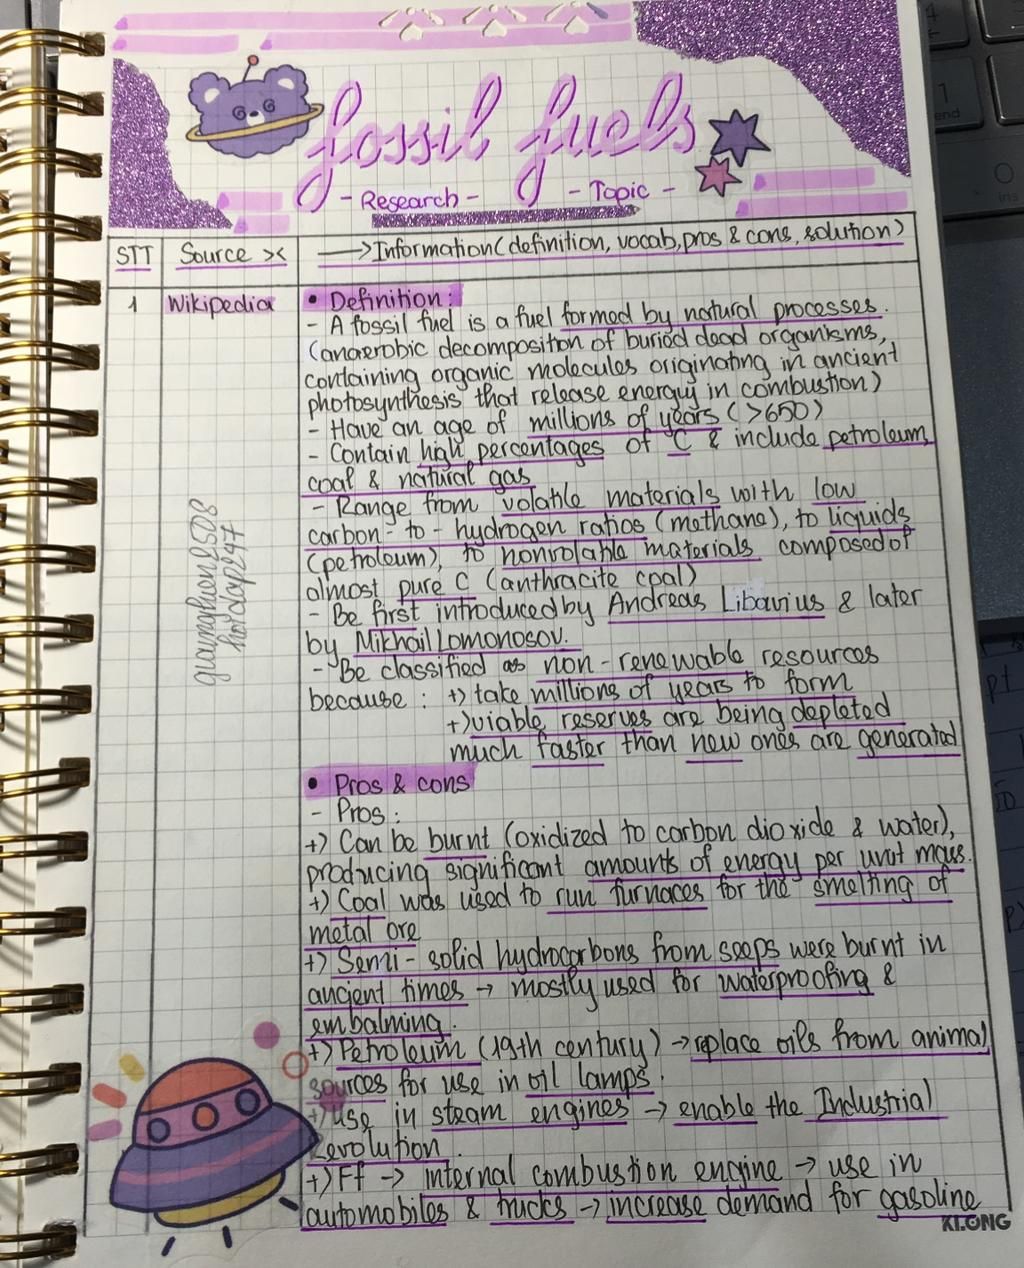 fossil fuels
- Research -   - Topic -
STT   Source ><   → Information (definition, vocab, pros & cons, solution)
1   Wikipedia
• Definition:
- A fossil fuel is a fuel formed by natural processes.
(anaerobic decomposition of buried dead organisms,
containing organic molecules originating in ancient
photosynthesis that release energy in combustion)
- Have an age of millions of years (>650)
- Contain high percentages of C & include petroleum,
coal & natural gas
- Range from volatile materials with low
carbon-to-hydrogen ratios (methane), to liquids
(petroleum), to nonvolatile materials composed of
almost pure C (anthracite coal)
- Be first introduced by Andreas Libavius & later
by Mikhail Lomonosov.
- Be classified as non-renewable resources
because: +) take millions of years to form
+) viable reserves are being depleted
much faster than new ones are generated
• Pros & cons
- Pros:
+) Can be burnt (oxidized to carbon dioxide & water),
producing significant amounts of energy per unit mass.
+) Coal was used to run furnaces for the smelting of
metal ore
+) Semi-solid hydrocarbons from seeps were burnt in
ancient times → mostly used for waterproofing &
embalming.
+) Petroleum (19th century) → replace oils from animal
sources for use in oil lamps.
+) use in steam engines → enable the Industrial
Revolution
+) Ff → internal combustion engine → use in
automobiles & trucks → increase demand for gasoline
KLONG